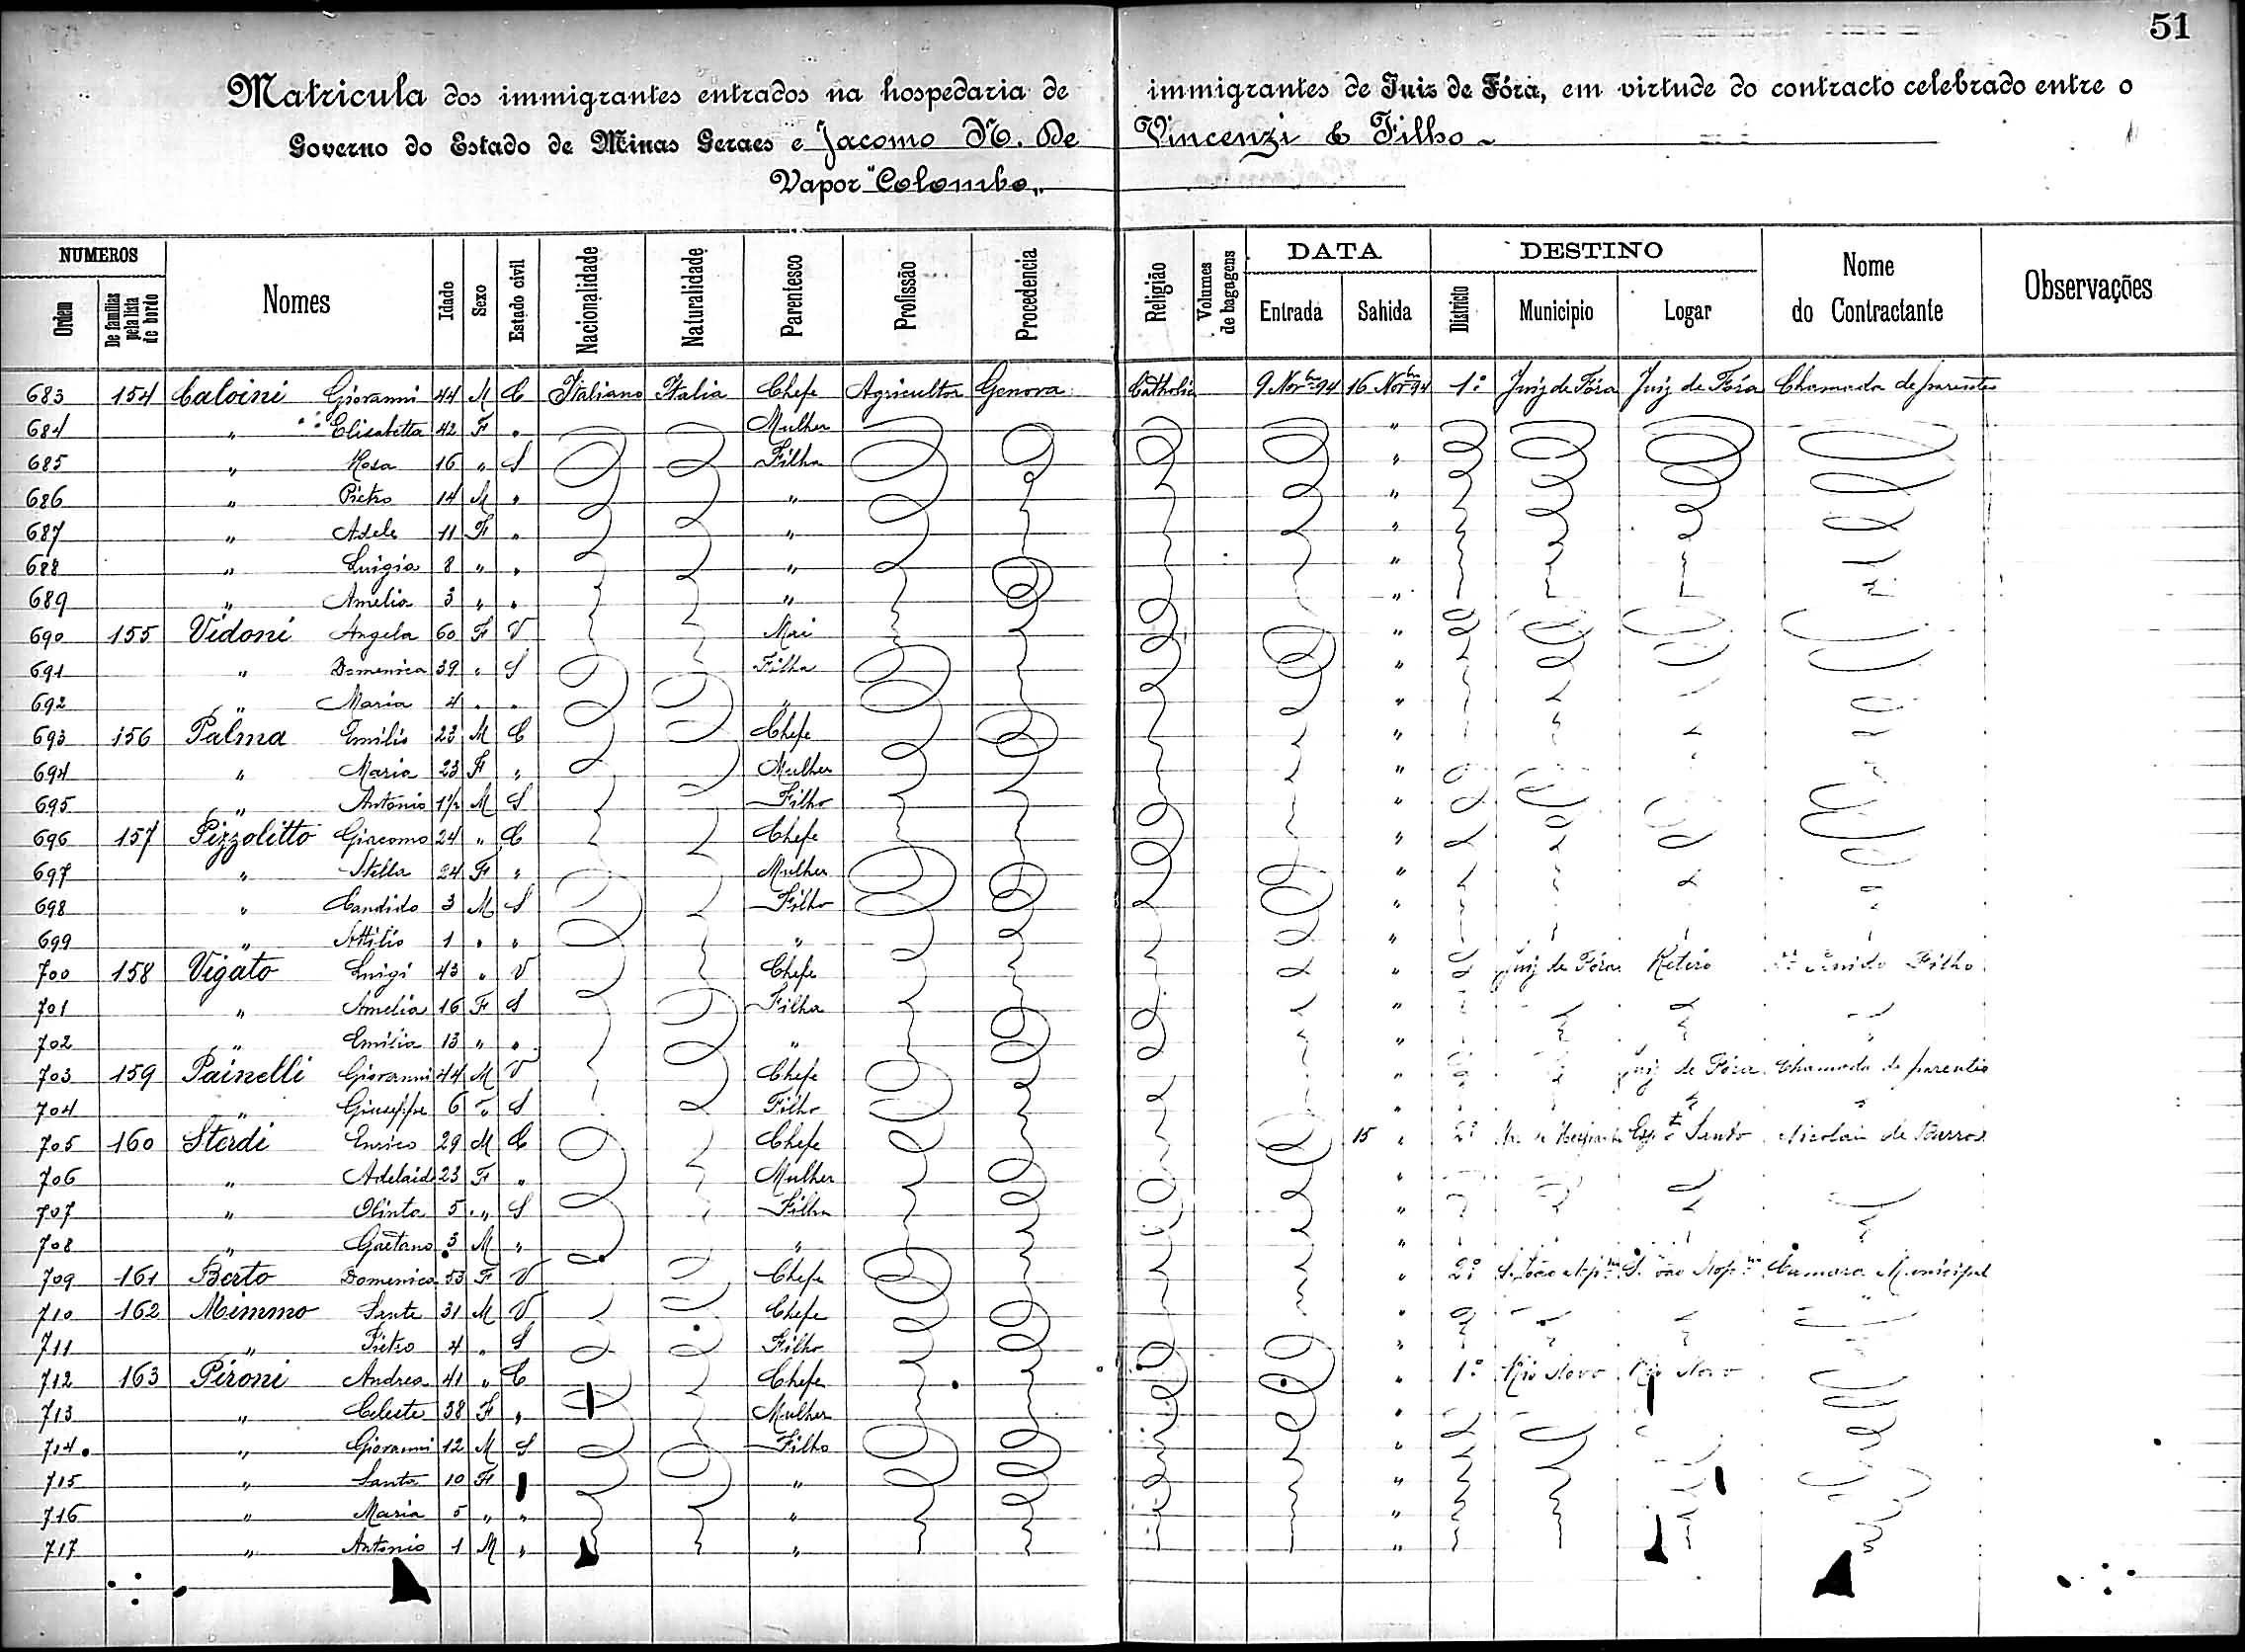 51
Matricula dos immigrantes entrados na hospedaria de immigrantes de Juiz de Fóra, em virtude do contracto celebrado entre o
Governo do Estado de Minas Geraes e Jacomo N. De Vincenzi & Filho
Vapor "Colombo"
NUMEROS DATA DESTINO
Ordem De familias pela lista de bordo Nomes Idade Sexo Estado civil Nacionalidade Naturalidade Parentesco Profissão Procedencia Religião Volumes de bagagens Entrada Sahida Districto Municipio Logar Nome do Contractante Observações
683 154 Caloini Giovanni 44 M C Italiano Italia Chefe Agricultor Genova Catholica 9 Nov bro 94 16 Nov bro 94 1º Juiz de Fóra Juiz de Fóra Chamada de parentes
684 " Elisabetta 42 F " Mulher "
685 " Rosa 16 " S Filha "
686 " Pietro 14 M " " "
687 " Adele 11 F " " "
688 " Luigia 8 " " " "
689 " Amelia 3 " " " "
690 155 Vidoni Angela 60 F V Mai "
691 " Domenica 39 " S Filha "
692 " Maria 4 " " " "
693 156 Palma Emilio 23 M C Chefe "
694 " Maria 23 F " Mulher "
695 " Antonio 1½ M S Filho "
696 157 Pizzolitto Giacomo 24 " C Chefe "
697 " Stella 24 F " Mulher "
698 " Candido 3 M S Filho "
699 " Attilio 1 " " " "
700 158 Vigato Luigi 43 " V Chefe " Juiz de Fóra Retiro Filho
701 " Amelia 16 F S Filha "
702 " Emilia 13 " " " "
703 159 Painelli Giovanni 44 M V Chefe " Juiz de Fóra Chamada de parentes
704 " Giuseppe 6 " S Filho "
705 160 Sterdi Enrico 29 M C Chefe 15 " 2º Esp to Santo Nicolau de Barros
706 " Adelaide 23 F " Mulher "
707 " Olinta 5 " S Filha "
708 " Gaetano 3 M " " "
709 161 Berto Domenica 53 F V Chefe " 2º S. João Nep no S. João Nop no Camara Municipal
710 162 Mimmo Sante 31 M V Chefe "
711 " Pietro 4 " S Filho "
712 163 Pironi Andrea 41 " C Chefe " 1º Rio Novo Rio Novo
713 " Celeste 38 F " Mulher "
714 " Giovanni 12 M S Filho "
715 " Santa 10 F " "
716 " Maria 5 " " " "
717 " Antonio 1 M " " "